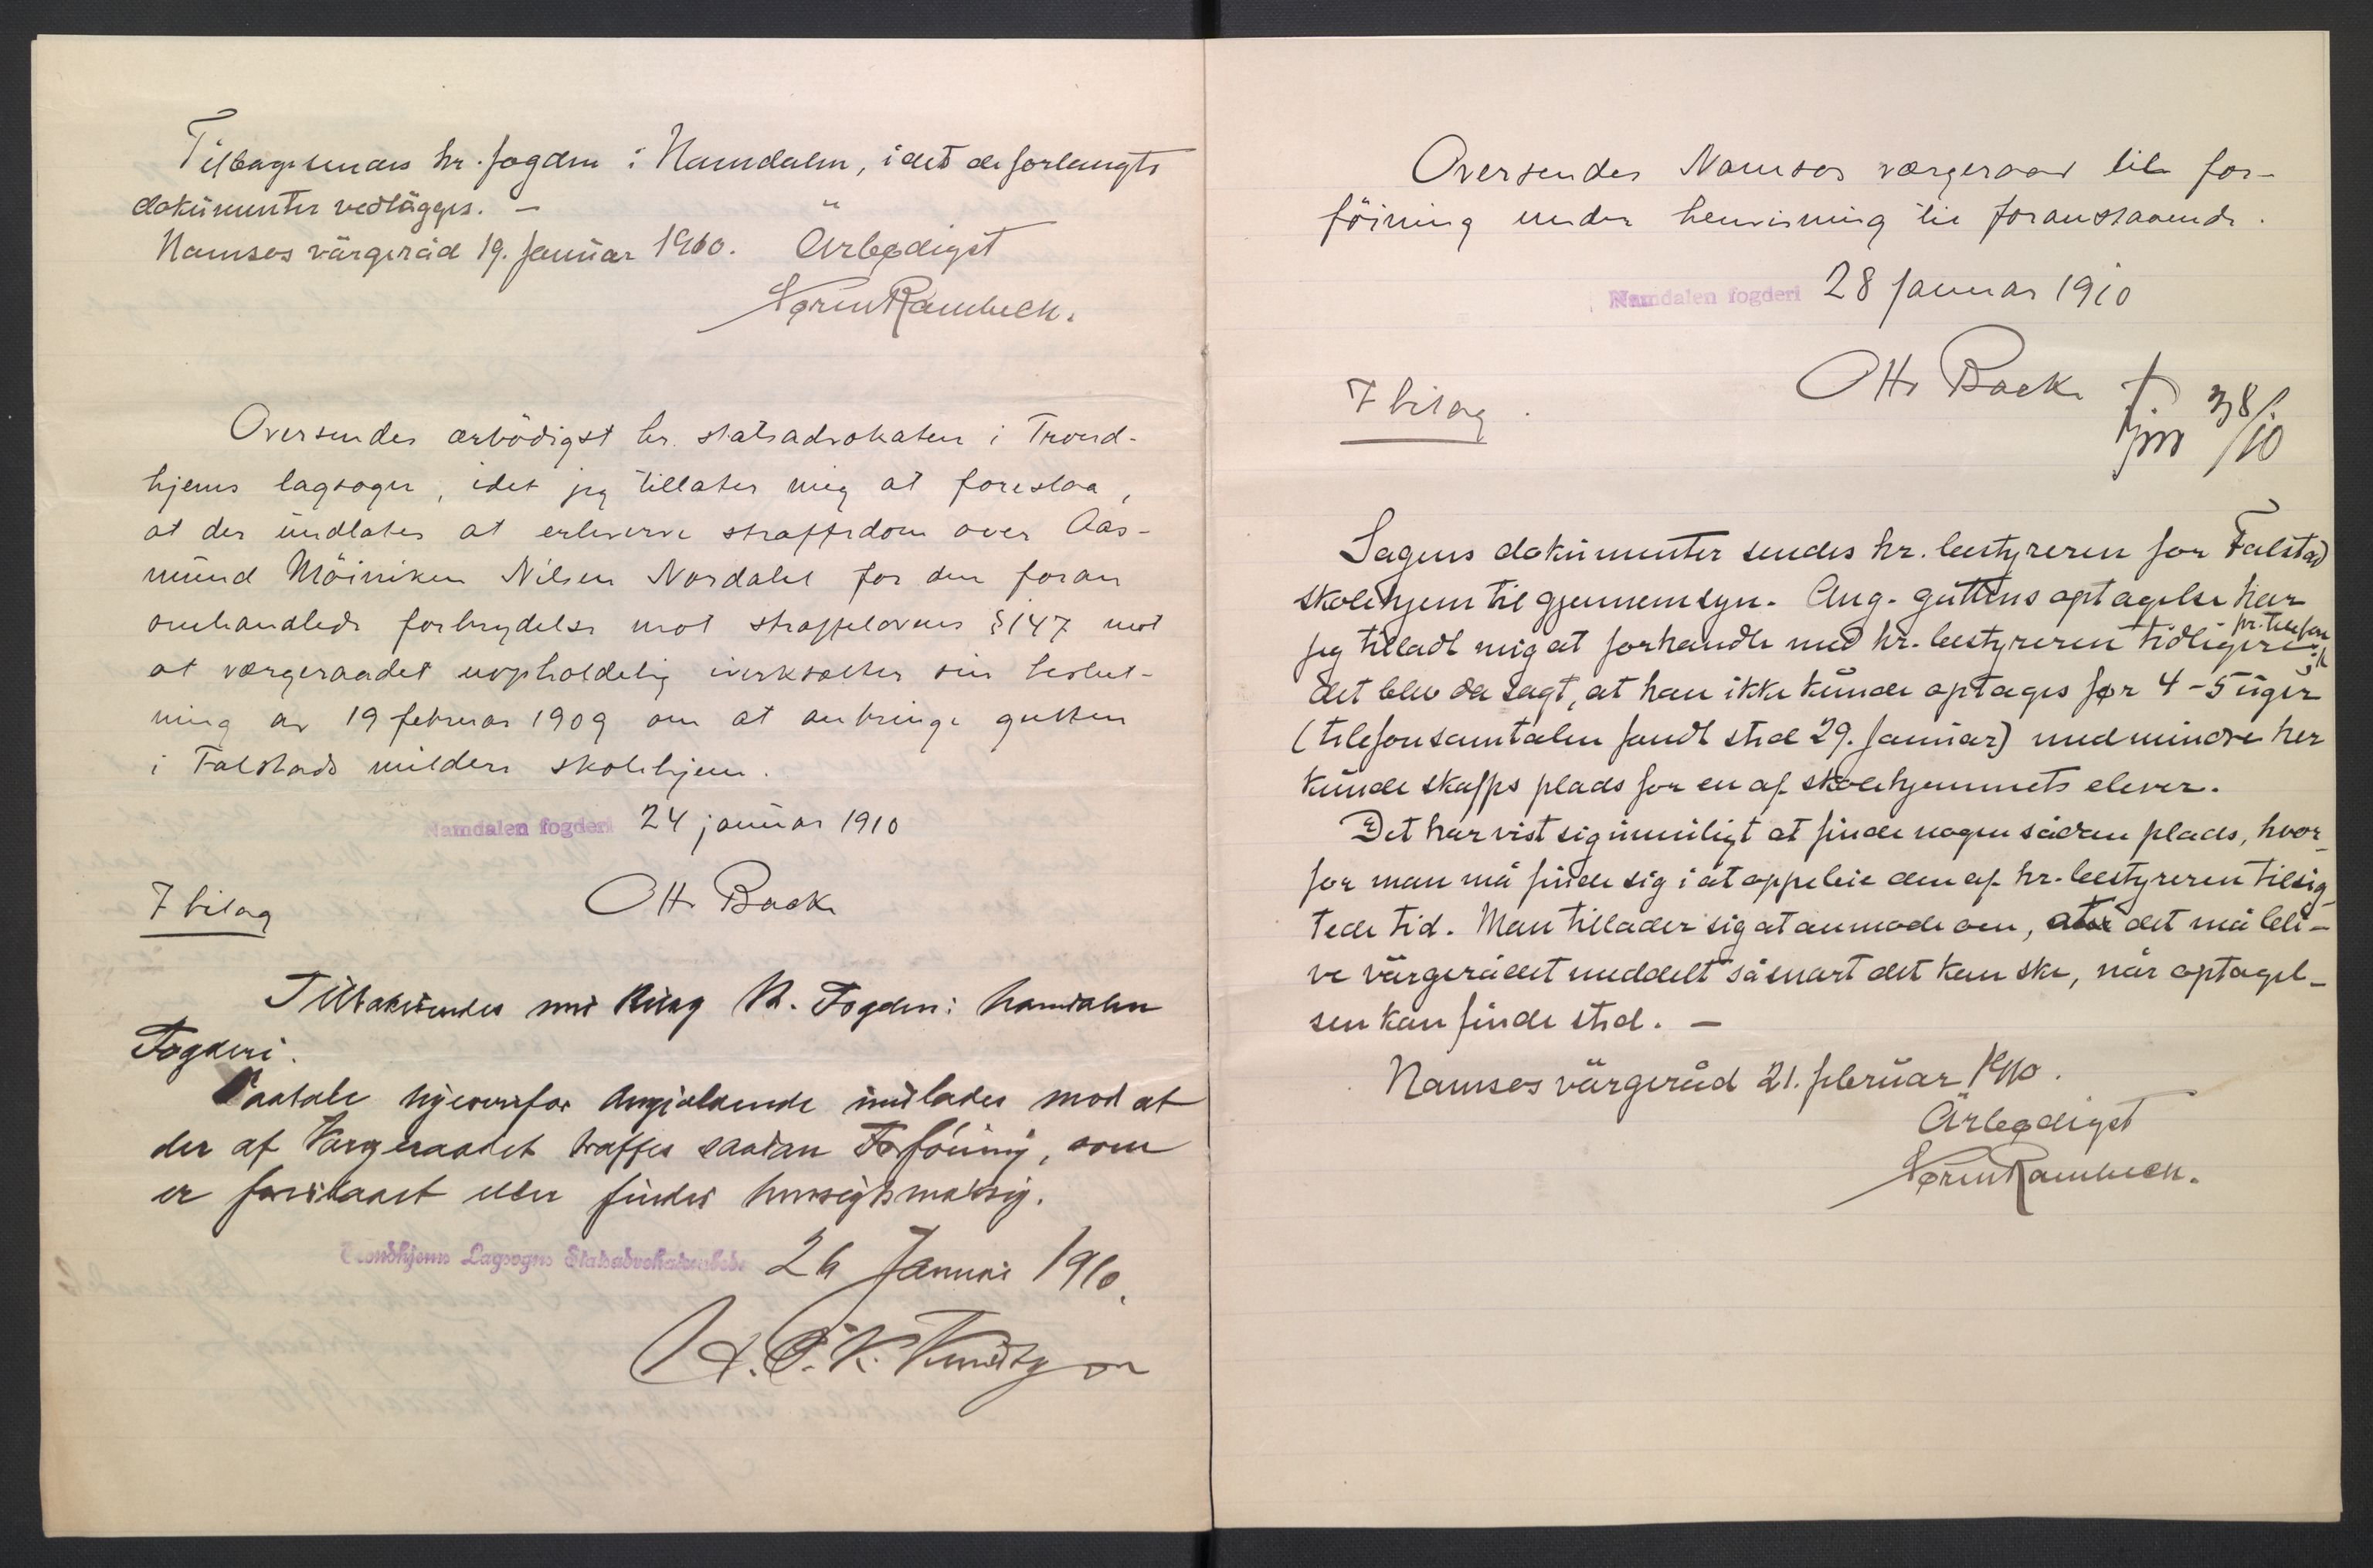 Tilbagesendes hr. fogden i Namdalen, idet de forlangte
dokumenter vedlägges. —
Namsos värgeråd 19. Januar 1910. Ärbødigst
Oversendes ærbödigst hr. statsadvokaten i Trond-
hjems lagsogn, idet jeg tillater mig at foreslaa,
at der undlates at erhverve straffedom over Aas-
mund Möiniken Nilsen Nordahl for den foran
omhandlede forbrydelse mot straffelovens § 147 mot
at værgeraadet uopholdelig iverksætter sin beslut-
ning av 19 februar 1909 om at anbringe gutten
i Falstads mildere skolehjem.
Namdalen fogderi 24 januar 1910
7 bilag Otto Back
Tilbakesendes med Bilag Hr. Fogden i Namdalen
Fogderi.
Paatale ligeoverfor Angjældende undlades mod at
der af Værgeraadet træffes saadan Forföining, som
er foreslaaet eller findes hensigtsmæssig.
Trondhjems Lagsogns Statsadvokatembede 26 Januar 1910.
Oversendes Namsos værgeraad til for-
föining under henvisning til foranstaaende.
Namdalen fogderi 28 Januar 1910
Otto Back
7 bilag
Sagens dokumenter sendes hr. bestyreren for Falstad
skolehjem til gjennemsyn. Ang. guttens optagelse har
jeg tilladt mig at forhandle med hr. bestyreren tidligere pr. telefon;
det blev da sagt, at han ikke kunde optages før 4-5 uger
(telefonsamtalen fandt sted 29. Januar) medmindre her
kunde skaffes plads for en af skolehjemmets elever.
Det har vist sig umuligt at finde nogen sådan plads, hvor-
for man må finde sig i at oppebie den af hr. bestyreren tilsig-
tede tid. Man tillader sig at anmode om, at det må bli-
ve värgerådet meddelt såsnart det kan ske, når optagel-
sen kan finde sted. —
Namsos värgeråd 21. februar 1910.
Ärbødigst